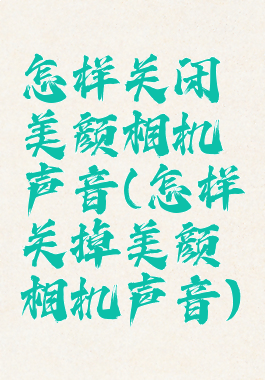 怎样关闭
美颜相机
声音(怎样
关掉美颜
相机声音)